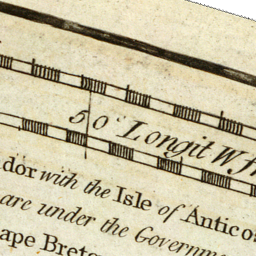 50° Longit W. fr
dor with the Isle of Antico
are under the Governme
ape Breto